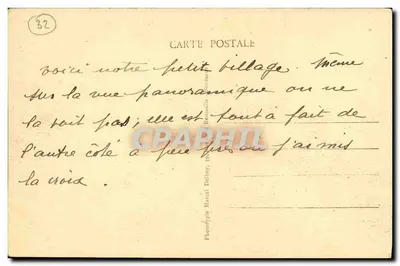 32
CARTE POSTALE
voici notre petit village. Même
sur la vue panoramique on ne
la voit pas ; elle est tout à fait de
l'autre côté à peu près où j'ai mis
la croix.
CPARAMA
Phototypie Marcel Delboy